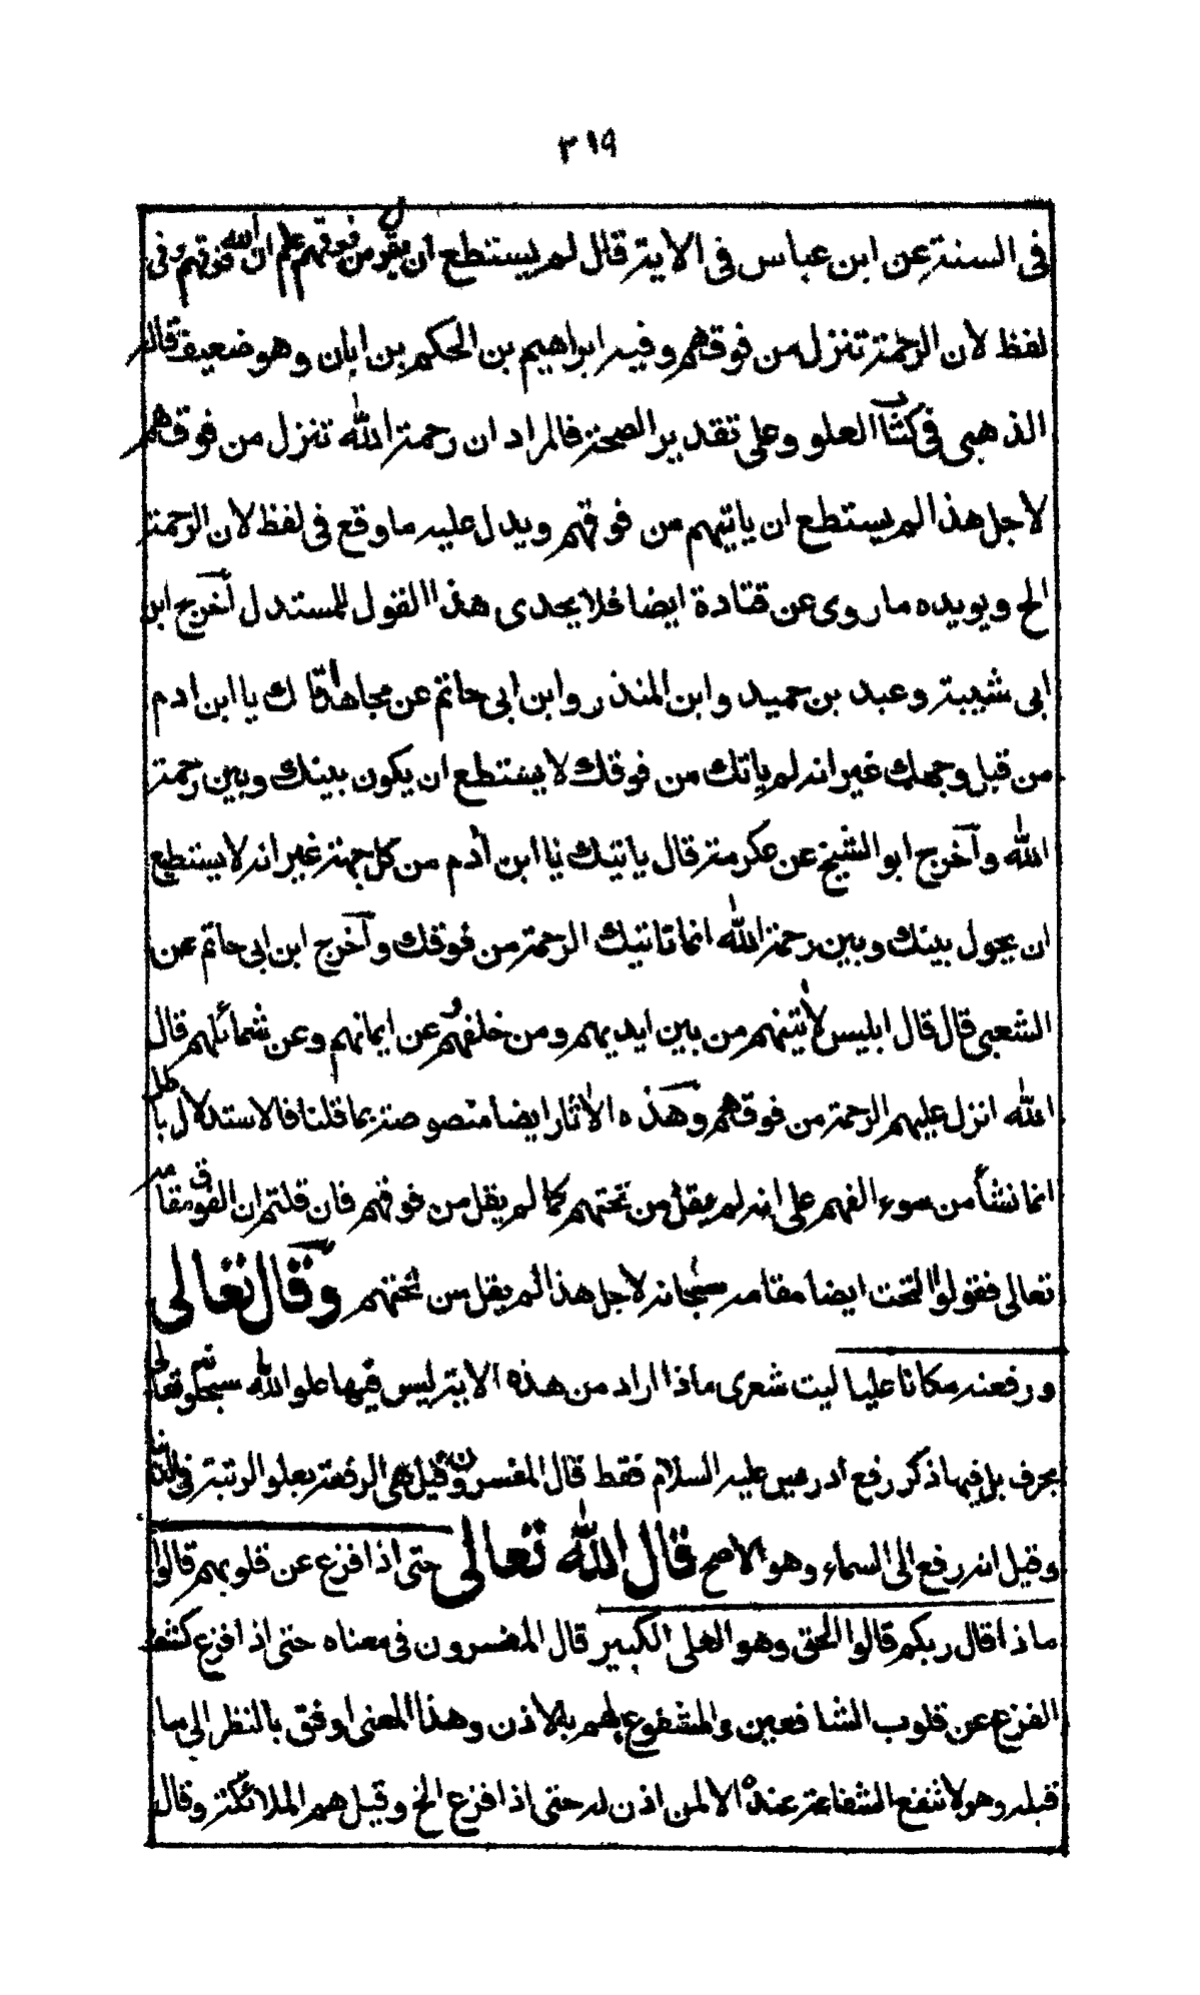 ٣١٩
فى السنة عن ابن عباس فى الاية قال لم يستطع ان يقول من فوقهم علم ان الله فوقهم وفى
لفظ لان الرحمة تنزل من فوقهم وفيه ابراهيم بن الحكم بن ابان وهو ضعيف قاله
الذهبى فى كتاب العلو وعلى تقدير الصحة فالمراد ان رحمة الله تنزل من فوقهم
لاجل هذا لم يستطع ان ياتيهم من فوقهم ويدل عليه ما وقع فى لفظ لان الرحمة
الخ ويويده ما روى عن قتادة ايضا فلا يجدى هذا القول للمستدل أخرج ابن
ابى شيبة وعبد بن حميد وابن المنذر وابن ابى حاتم عن مجاهد قال ياتك يا ابن ادم
من قبل وجهك غير انه لم ياتك من فوقك لا يستطع ان يكون بينك وبين رحمة
الله وآخرج ابو الشيخ عن عكرمة قال ياتيك يا ابن أدم من كل جهة غير انه لا يستطيع
ان يحول بينك وبين رحمة الله انما تاتيك الرحمة من فوقك وآخرج ابن ابى حاتم عن
الشعبى قال قال ابليس لأتينهم من بين ايديهم ومن خلفهم وعن ايمانهم وعن شمائلهم قال
الله انزل عليهم الرحمة من فوقهم وهذه الاثار ايضا منصوصة بما قلنا فالاستدلال باطل
انما نشأ من سوء الفهم على انه لم يقل من تحتهم كما لم يقل من فوقهم فان قلتم ان الفوق مقامه
تعالى فقولوا التحت ايضا مقامه سبحانه لاجل هذا لم يقل من تحتهم وقال تعالى
ورفعنه مكانا عليا ليت شعرى ماذا اراد من هذه الاية ليس فيها علو الله سبحانه وتعالى
بحرف بل فيها ذكر رفع ادريس عليه السلام فقط قال المفسرون وقيل هى الرفعة بعلو الرتبة فى الدنيا
وقيل انه رفع الى السماء وهو الاصح قال الله تعالى حتى اذا فزع عن قلوبهم قالوا
ماذا قال ربكم قالوا الحق وهو العلى الكبير قال المفسرون فى معناه حتى اذا فزع كشف
الفزع عن قلوب الشافعين والمشفوع لهم بالاذن وهذا المعنى اوفق بالنظر الى ما
قبله وهو لا تنفع الشفاعة عنده الا لمن اذن له حتى اذا فزع الخ وقيل هم الملائكة وقال